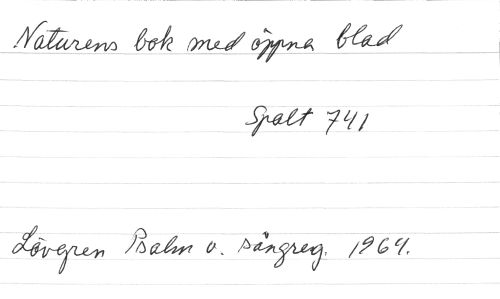 Naturens bok med öppna blad
Spalt 741
Lövgren Psalm o. sångreg. 1964.